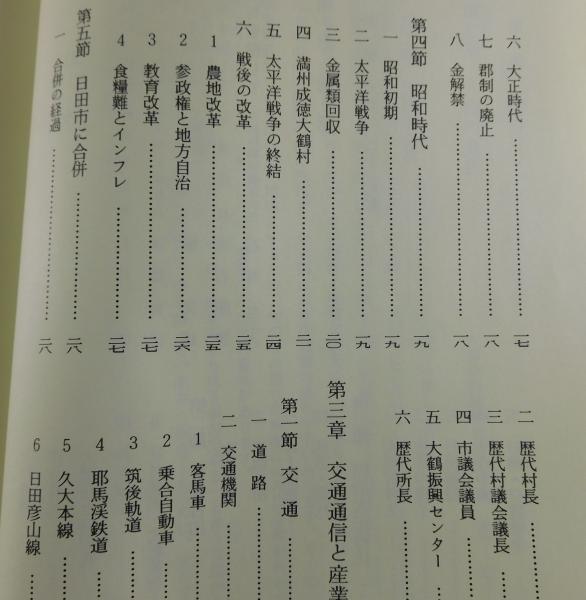 六 大正時代 …… 一七
七 郡制の廃止 …… 一八
八 金解禁 …… 一八
第四節 昭和時代 …… 一九
一 昭和初期 …… 一九
二 太平洋戦争 …… 一九
三 金属類回収 …… 二〇
四 満州成徳大鶴村 …… 二一
五 太平洋戦争の終結 …… 二四
六 戦後の改革 …… 二五
1 農地改革 …… 二五
2 参政権と地方自治 …… 二六
3 教育改革 …… 二七
4 食糧難とインフレ …… 二七
第五節 日田市に合併 …… 二八
一 合併の経過 …… 二八
二 歴代村長 ……
三 歴代村議会議長 ……
四 市議会議員 ……
五 大鶴振興センター ……
六 歴代所長 ……
第三章 交通通信と産業
第一節 交通 ……
一 道路 ……
二 交通機関 ……
1 客馬車 ……
2 乗合自動車 ……
3 筑後軌道 ……
4 耶馬渓鉄道 ……
5 久大本線 ……
6 日田彦山線 ……